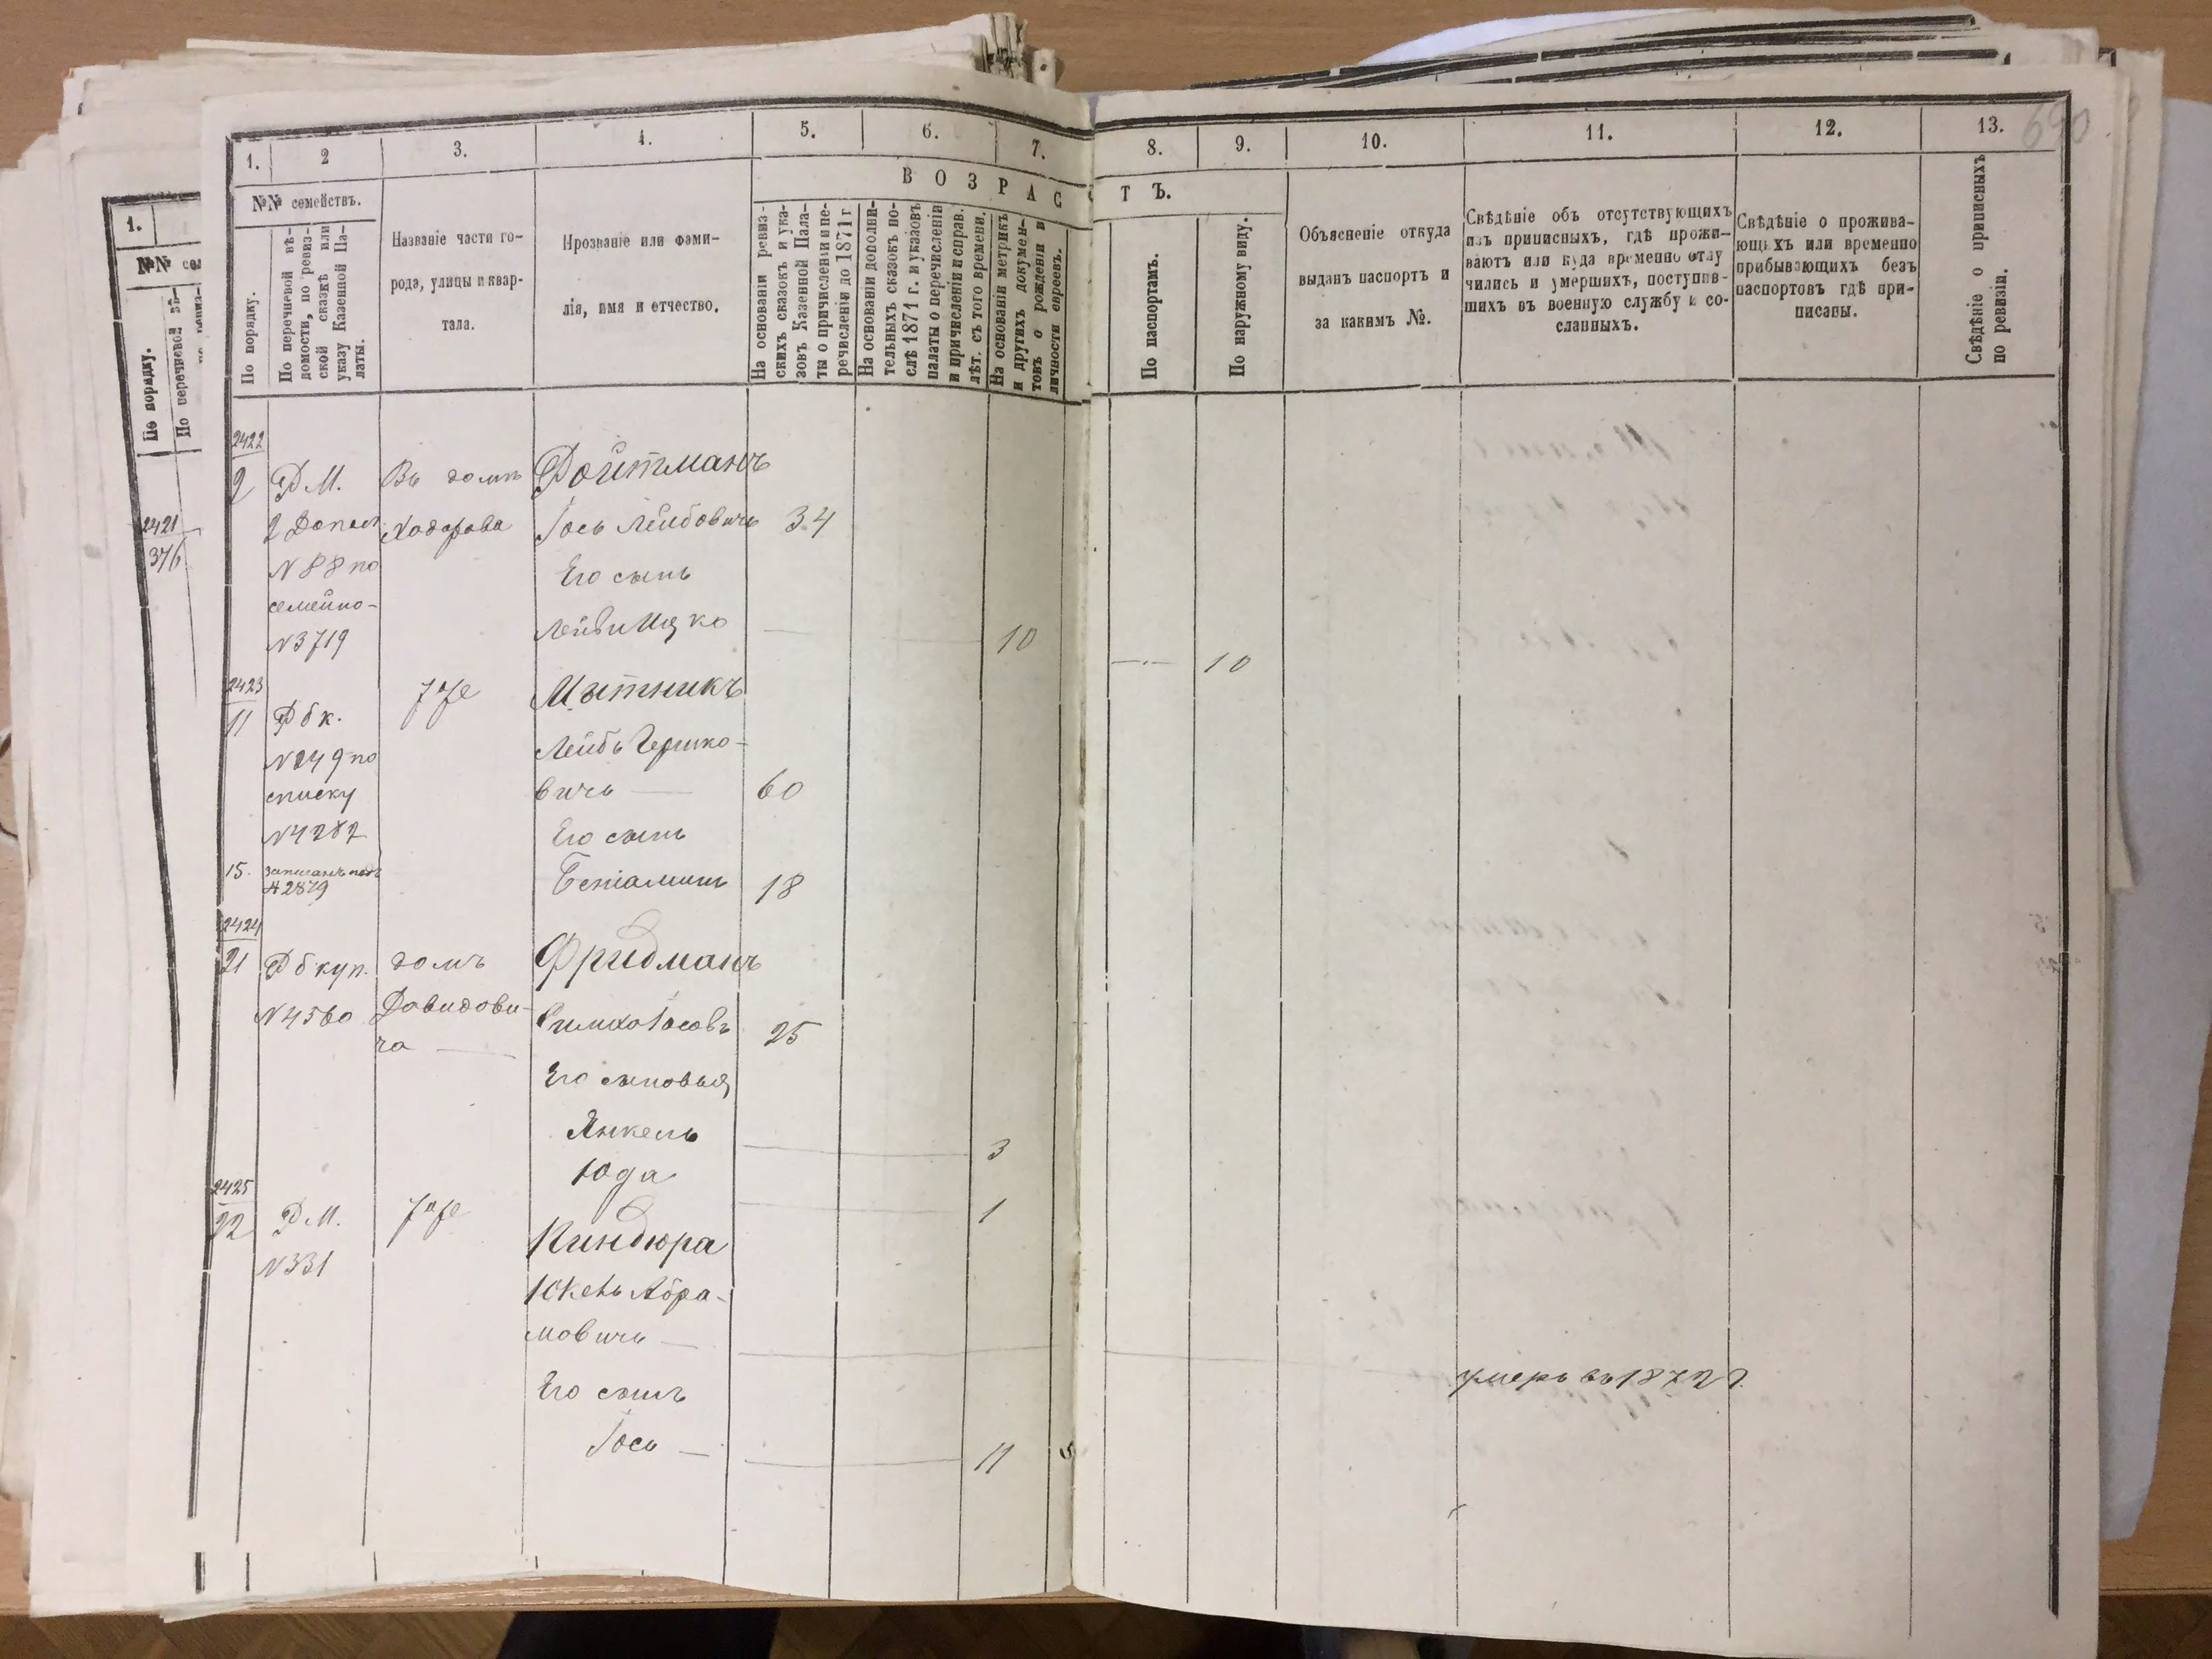 690
1. 2 3. 4. 5. 6. 7. 8. 9. 10. 11. 12. 13.
ВОЗРАСТЪ.
№№ семействъ.
По порядку.
По перечневой вѣ-
домости, по ревиз-
ской сказкѣ или
указу Казенной Па-
латы.
Названіе части го-
рода, улицы и квар-
тала.
Прозваніе или фами-
лія, имя и отчество.
На основаніи ревиз-
скихъ сказокъ и ука-
зовъ Казенной Пала-
ты о причисленіи и пе-
речисленіи до 1871 г
На основаніи дополни-
тельныхъ сказокъ по-
слѣ 1871 г. и указовъ
палаты о перечисленіи
и причисленіи и исправ.
лѣт. съ того времени.
На основаніи метрикъ
и другихъ докумен-
товъ о рожденіи и
личности евреевъ.
По паспортамъ.
По наружному виду.
Объясненіе откуда
выданъ паспортъ и
за какимъ №.
Свѣдѣніе объ отсутствующихъ
изъ приписныхъ, гдѣ прожи-
ваютъ или куда временно отлу
чились и умершихъ, поступив-
шихъ въ военную службу и со-
сланныхъ.
Свѣдѣніе о прожива-
ющихъ или временно
прибывающихъ безъ
паспортовъ гдѣ при-
писаны.
Свѣдѣніе о приписныхъ
по ревизіи.
1.
№№ сем
По порядку.
По перечневой вѣ-
2421
376
2422
2 Р М. Въ домѣ Фойтманъ
2 Допол. Ходорова Іось Лейбовичъ 34
N 88 по Его сынъ
семейно-
N 3719 Лейби Ицко 10 10
2423
11 Р б к. тоже Мытникъ
N 249 по Лейбъ Гершко-
списку вичъ 60
N 4282 Его сынъ
15. записанъ подъ Беніаминъ 18
N 2879
2424
21 Р б куп. домъ Фридманъ
N 4560 Давидови- Симха Іосовъ 25
ча
Его сыновья
Янкель 3
Юда 1
2425
22 Р М. тоже Киндюра
N 331
Юкель Абра-
мовичъ умеръ въ 1872 г.
Его сынъ
Іось 11